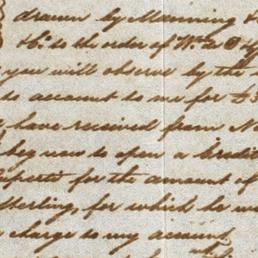 drawn by Manning &
to the order of Wm
you will observe by the
account to me for
have received from
beg now to open a Credit
for the amount of
Sterling, for which he
charge to my account